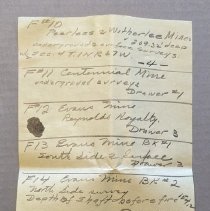 F#10
Peerless & Witherbee Mines
underground surveys 269.32 deep
Sec 4 T.1N R67W
-4-
F#11 Centennial Mine
underground surveys
Drawer #1
F#12 Evans Mine
Reynolds Royalty.
Drawer 3
F13 Evans Mine BK #1
South Side surface
Drawer 2
F14 Evans Mine BK #2
North Side survey
Depth of Shaft before fire